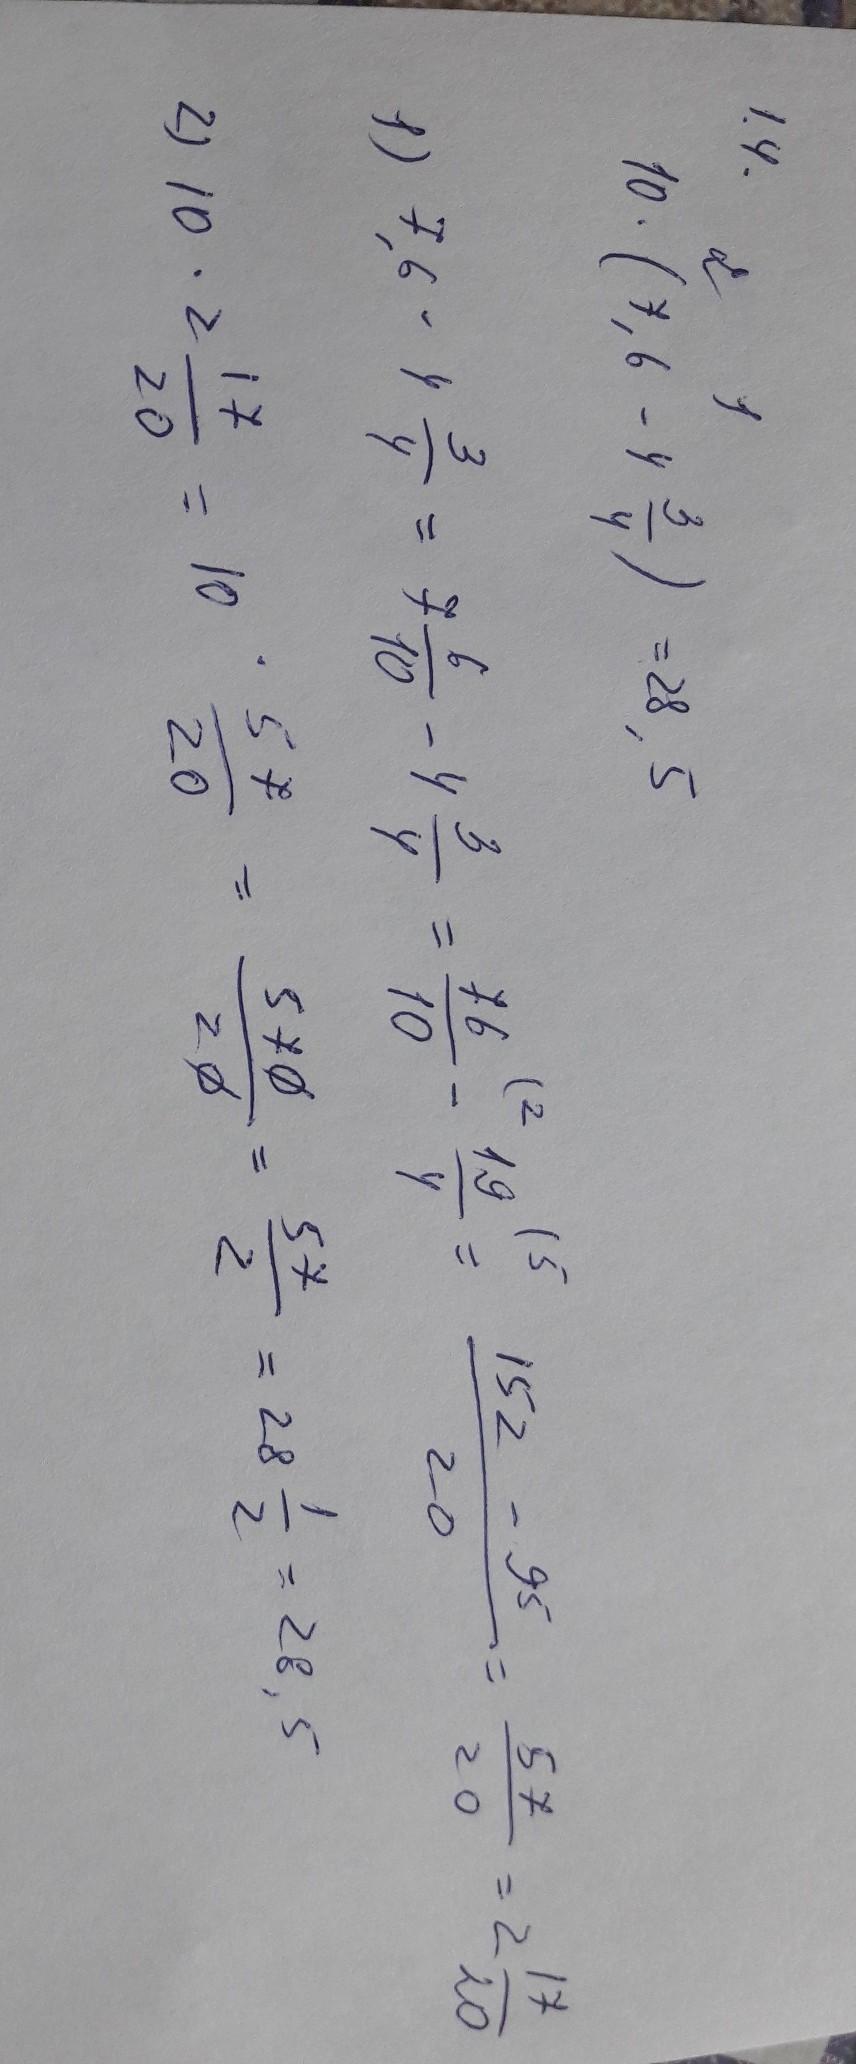 1.4.
2 1
10 · (7,6 - 4 3/4) = 28,5
1) 7,6 - 4 3/4 = 7 6/10 - 4 3/4 = 76/10 (2 - 19/4 (5 = 152 - 95/20 = 57/20 = 2 17/20
2) 10 · 2 17/20 = 10 · 57/20 = 570/20 = 57/2 = 28 1/2 = 28,5